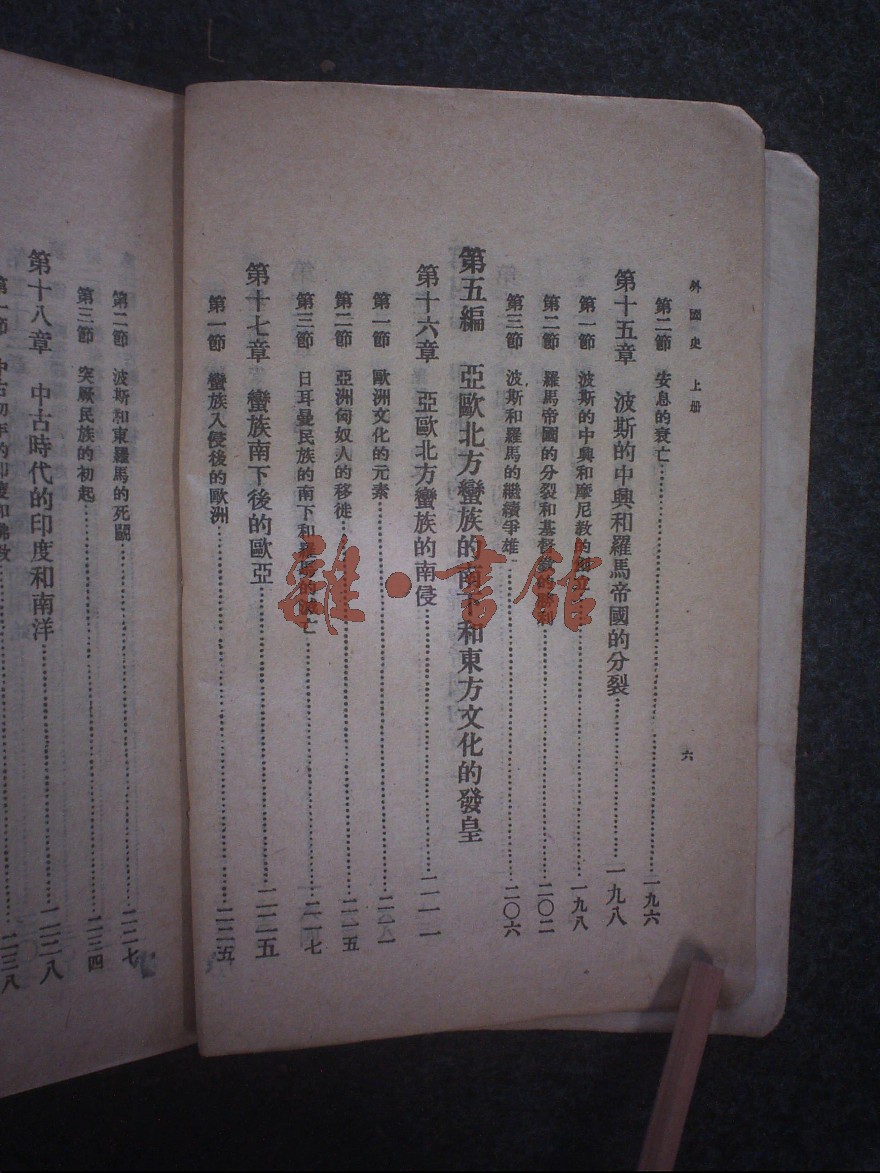 外國史 上册
六
第二節 安息的衰亡……一九六
第十五章 波斯的中興和羅馬帝國的分裂……一九八
第一節 波斯的中興和摩尼教的……一九八
第二節 羅馬帝國的分裂和基督教的……二〇二
第三節 波斯和羅馬的繼續爭雄……二〇六
第五編 亞歐北方蠻族的南下和東方文化的發皇
第十六章 亞歐北方蠻族的南侵……二一一
第一節 歐洲文化的元素……二一一
第二節 亞洲匈奴人的移徙……二一五
第三節 日耳曼民族的南下和羅馬的亡……二一七
第十七章 蠻族南下後的歐亞……二二五
第一節 蠻族入侵後的歐洲……二二五
第二節 波斯和東羅馬的死鬭……二二七
第三節 突厥民族的初起……二三四
第十八章 中古時代的印度和南洋……二三八
第一節 中古初年的印度和佛教……二三八
雜·書館